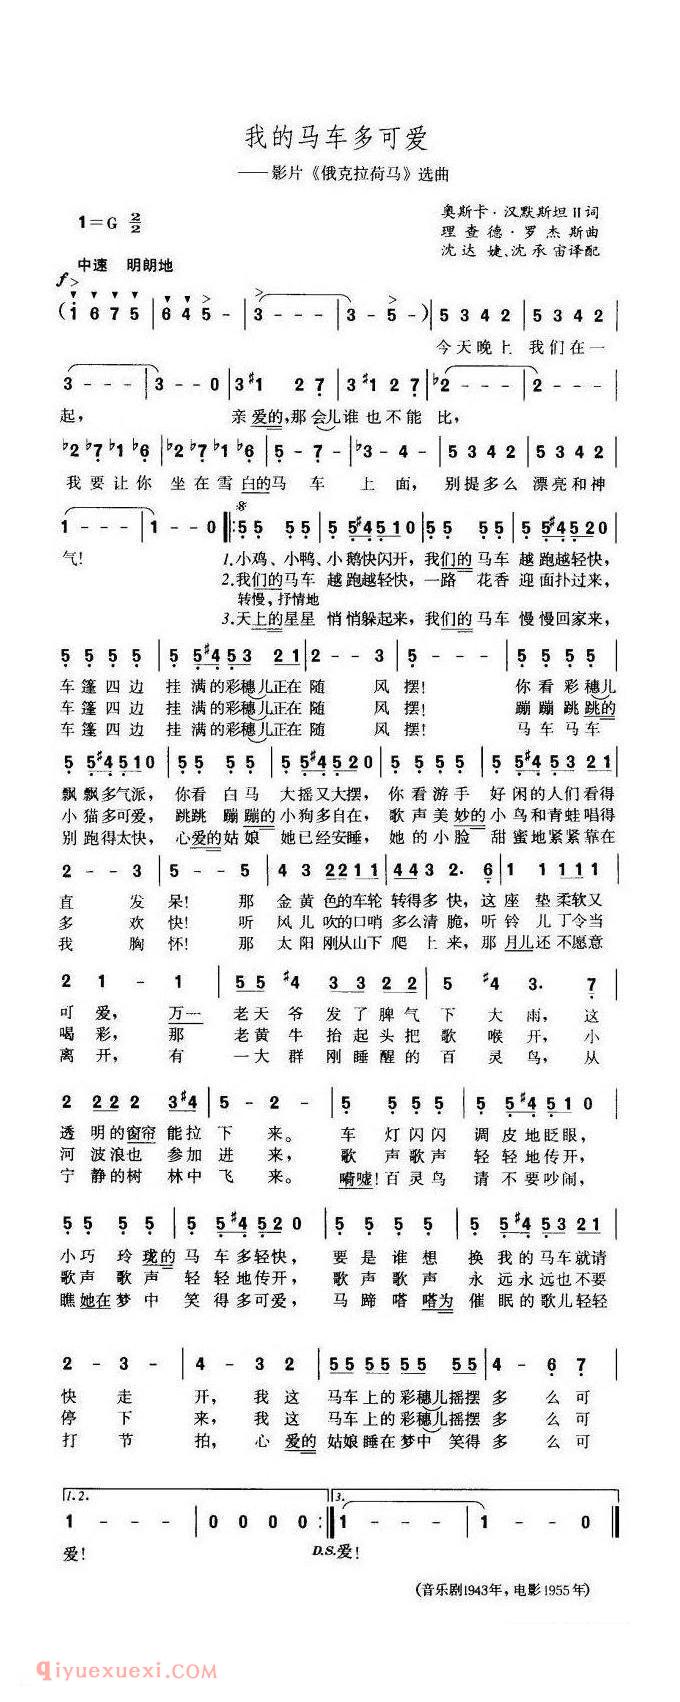 我的马车多可爱
——影片《俄克拉荷马》选曲
奥斯卡·汉默斯坦Ⅱ词
1=G 2/2
理查德·罗杰斯曲
沈达婕、沈承宙译配
中速 明朗地
f
(i 6 7 5 | 6 4 5 - | 3 - - - | 3 - 5 - ) | 5 3 4 2 | 5 3 4 2 |
今天晚上 我们在一
3 - - - | 3 - - 0 | 3 #1 2 7 | 3 #1 2 7 | b2 - - - | 2 - - - |
起, 亲爱的,那会儿谁也不能比,
b2 b7 b1 b6 | b2 b7 b1 b6 | 5 - 7 - | b3 - 4 - | 5 3 4 2 | 5 3 4 2 |
我要让你 坐在雪白的马车上面, 别提多么 漂亮和神
1 - - - | 1 - - 0 ‖: 55 55 | 5 5#4510 | 55 55 | 5 5#4520 |
气! 1.小鸡、小鸭、小鹅快闪开,我们的马车 越跑越轻快,
2.我们的马车 越跑越轻快,一路 花香 迎面扑过来,
转慢,抒情地
3.天上的星星 悄悄躲起来,我们的马车 慢慢回家来,
5 5 5 5 | 5 5#453 21 | 2 - - 3 | 5 - - - | 5 5 5 5 |
车篷四边 挂满的彩穗儿正在随 风摆! 你看彩穗儿
车篷四边 挂满的彩穗儿正在随 风摆! 蹦蹦跳跳的
车篷四边 挂满的彩穗儿正在随 风摆! 马车马车
5 5#4510 | 55 55 | 5 5#4520 | 55 55 | 5 5#453 21 |
飘飘多气派,你看 白马 大摇又大摆,你看游手 好闲的人们看得
小猫多可爱,跳跳 蹦蹦的 小狗多自在,歌声美妙的 小鸟和青蛙唱得
别跑得太快,心爱的姑娘 她已经安睡,她的小脸 甜蜜地紧紧靠在
2 - - 3 | 5 - - 5 | 4 43 2211 | 443 2. 6 | 1 1 1111 |
直发呆!那 金黄色的车轮 转得多快,这座垫柔软又
多欢快!听 风儿吹的口哨 多么清脆,听铃儿丁令当
我胸怀!那 太阳刚从山下 爬上来,那月儿还不愿意
2 1 - 1 | 55 5 #4 | 4 33 22 | 5 #4 3. 7 |
可爱,万一 老天爷发了脾气下大雨,这
喝彩,那 老黄牛抬起头把歌喉开,小
离开,有 一大群刚睡醒的百灵鸟,从
2 222 3#4 | 5 - 2 - | 5 55 5 | 5 5#4 510 |
透明的窗帘 能拉下来。车灯闪闪 调皮地眨眼,
河波浪也 参加进来, 歌声歌声 轻轻地传开,
宁静的树 林中飞来。嗬嘘!百灵鸟 请不要吵闹,
55 55 | 5 5#4520 | 5 5 5 5 | 5 5#453 21 |
小巧玲珑的 马车多轻快, 要是谁想 换我的马车就请
歌声歌声 轻轻地传开, 歌声歌声 永远永远也不要
瞧她在梦中 笑得多可爱, 马蹄嗒嗒为 催眠的歌儿轻轻
2 - 3 - | 4 - 3 2 | 55 55 55 55 | 4 - 6 7 |
快走开,我这 马车上的彩穗儿摇摆多么可
停下来,我这 马车上的彩穗儿摇摆多么可
打节拍,心爱的 姑娘睡在梦中笑得多么可
1.2. 3.
1 - - - | 0 0 0 0 :‖ 1 - - - | 1 - - 0 ‖
爱! D.S.爱!
(音乐剧1943年,电影1955年)
qiyuexuexi.com